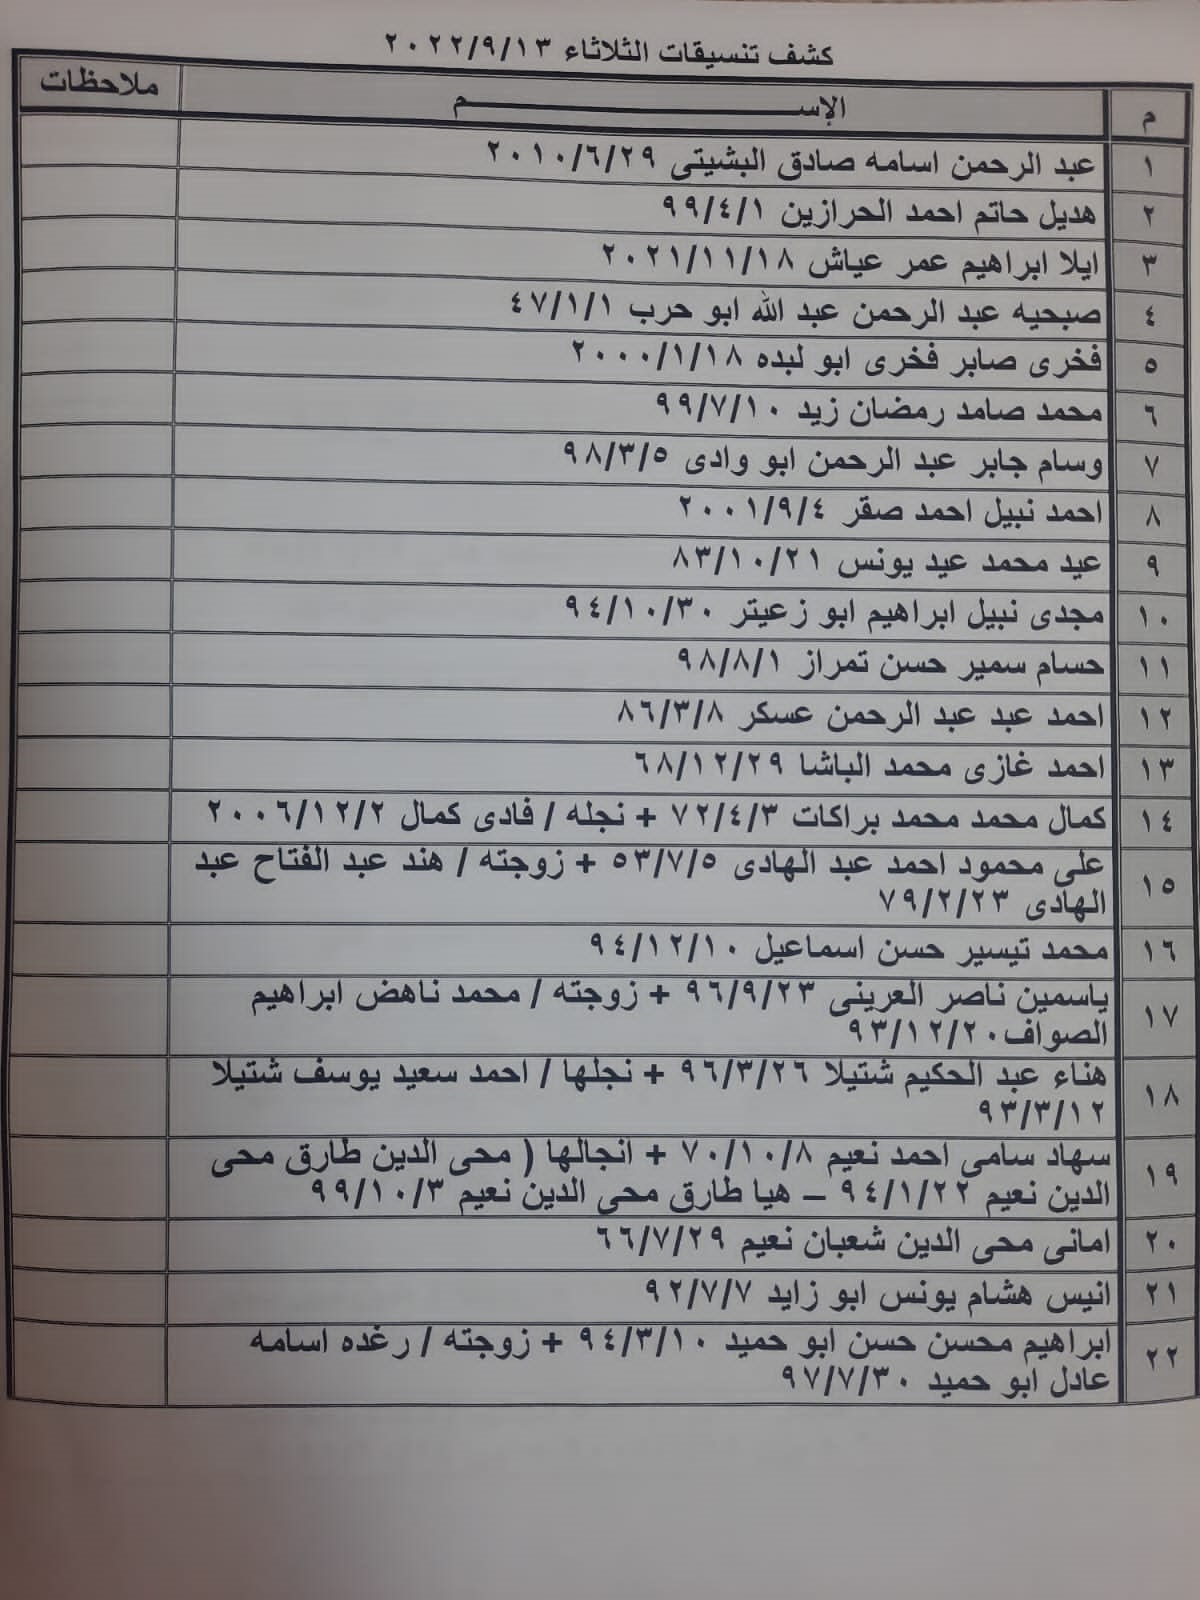 كشف تنسيقات الثلاثاء ٢٠٢٢/٩/١٣
م الإســـــــــــــــــم ملاحظات
١ عبد الرحمن اسامه صادق البشيتى ٢٠١٠/٦/٢٩
٢ هديل حاتم احمد الحرازين ٩٩/٤/١
٣ ايلا ابراهيم عمر عياش ٢٠٢١/١١/١٨
٤ صبحيه عبد الرحمن عبد الله ابو حرب ٤٧/١/١
٥ فخرى صابر فخرى ابو لبده ٢٠٠٠/١/١٨
٦ محمد صامد رمضان زيد ٩٩/٧/١٠
٧ وسام جابر عبد الرحمن ابو وادى ٩٨/٣/٥
٨ احمد نبيل احمد صقر ٢٠٠١/٩/٤
٩ عيد محمد عيد يونس ٨٣/١٠/٢١
١٠ مجدى نبيل ابراهيم ابو زعيتر ٩٤/١٠/٣٠
١١ حسام سمير حسن تمراز ٩٨/٨/١
١٢ احمد عبد عبد الرحمن عسكر ٨٦/٣/٨
١٣ احمد غازى محمد الباشا ٦٨/١٢/٢٩
١٤ كمال محمد محمد براكات ٧٢/٤/٣ + نجله / فادى كمال ٢٠٠٦/١٢/٢
١٥ على محمود احمد عبد الهادى ٥٣/٧/٥ + زوجته / هند عبد الفتاح عبد
الهادى ٧٩/٢/٢٣
١٦ محمد تيسير حسن اسماعيل ٩٤/١٢/١٠
١٧ ياسمين ناصر العرينى ٩٦/٩/٢٣ + زوجته / محمد ناهض ابراهيم
الصواف ٩٣/١٢/٢٠
١٨ هناء عبد الحكيم شتيلا ٩٦/٣/٢٦ + نجلها / احمد سعيد يوسف شتيلا
٩٣/٣/١٢
١٩ سهاد سامى احمد نعيم ٧٠/١٠/٨ + انجالها ( محى الدين طارق محى
الدين نعيم ٩٤/١/٢٢ – هيا طارق محى الدين نعيم ٩٩/١٠/٣
٢٠ امانى محى الدين شعبان نعيم ٦٦/٧/٢٩
٢١ انيس هشام يونس ابو زايد ٩٢/٧/٧
٢٢ ابراهيم محسن حسن ابو حميد ٩٤/٣/١٠ + زوجته / رغده اسامه
عادل ابو حميد ٩٧/٧/٣٠